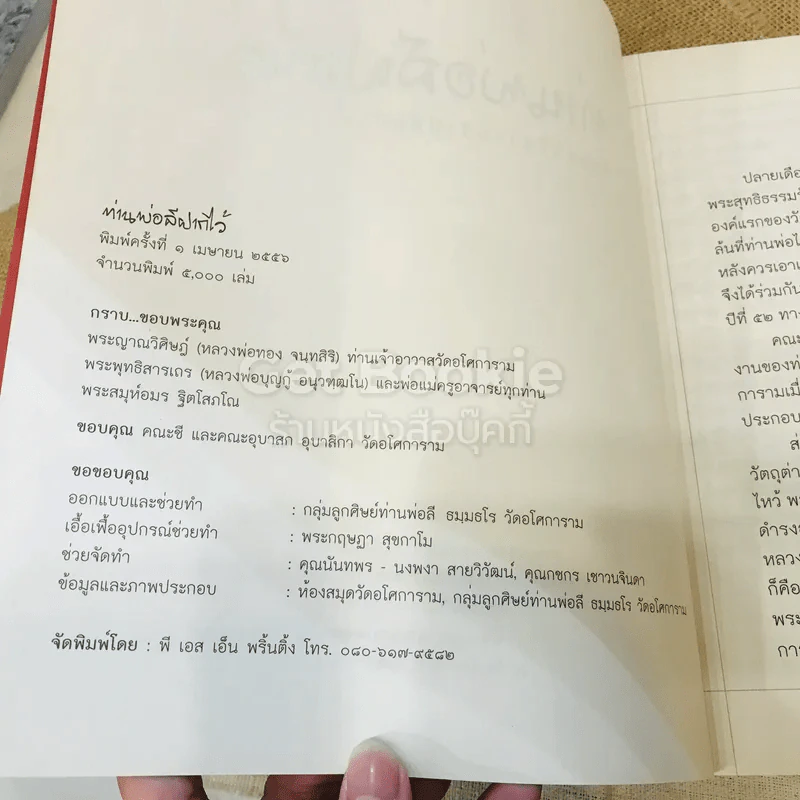 ท่านพ่อลีฝากไว้
พิมพ์ครั้งที่ ๑ เมษายน ๒๕๕๖
จำนวนพิมพ์ ๕,๐๐๐ เล่ม
กราบ...ขอบพระคุณ
พระญาณวิศิษฏ์ (หลวงพ่อทอง จนฺทสิริ) ท่านเจ้าอาวาสวัดอโศการาม
พระพุทธิสารเถร (หลวงพ่อบุญกู้ อนุวฑฺฒโน) และพ่อแม่ครูอาจารย์ทุกท่าน
พระสมุห์อมร ฐิตโสภโณ
Get Bookie
ร้านหนังสือบุ๊คกี้
ขอบคุณ คณะชี และคณะอุบาสก อุบาสิกา วัดอโศการาม
ขอขอบคุณ
ออกแบบและช่วยทำ : กลุ่มลูกศิษย์ท่านพ่อลี ธมฺมธโร วัดอโศการาม
เอื้อเฟื้ออุปกรณ์ช่วยทำ : พระกฤษฎา สุขกาโม
ช่วยจัดทำ : คุณนันทพร - นงพงา สายวิวัฒน์, คุณกชกร เชาวนจินดา
ข้อมูลและภาพประกอบ : ห้องสมุดวัดอโศการาม, กลุ่มลูกศิษย์ท่านพ่อลี ธมฺมธโร วัดอโศการาม
จัดพิมพ์โดย : พี เอส เอ็น พริ้นติ้ง โทร. ๐๘๐-๖๑๗-๙๕๘๒
ปลายเดือ
พระสุทธิธรรมรั
องค์แรกของวั
ล้นที่ท่านพ่อไ
หลังควรเอาแ
จึงได้ร่วมกัน
ปีที่ ๕๒ ทาง
คณะ
งานของท่
การามเมื่
ประกอบ
ส่
วัตถุต่า
ไหว้ พ
ดำรง
หลวง
ก็คือ
พระ
กา